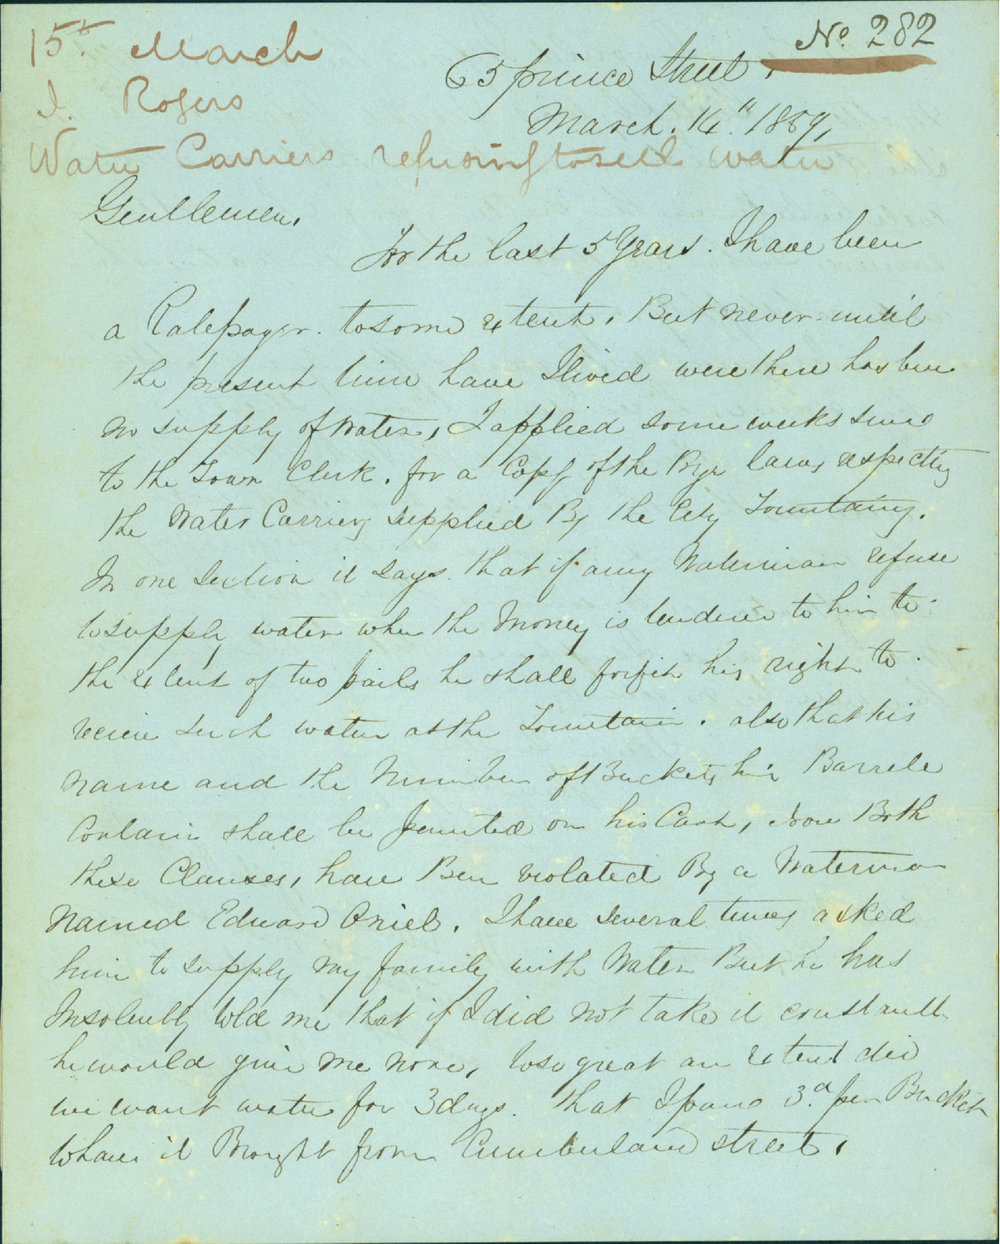 No. 282
15th March
J. Rogers
Water Carriers refusing to sell water
65 prince Street.
March. 14th 1859,
Gentlemen.
For the last 5 Years. I have been
a Ratepayer. to some extent. But never until
the present time have I lived were there has been
no supply of Water, I applied some weeks since
to the Town Clerk. for a Copy of the Bye laws, respecting
the Water Carriers supplied By the City Fountains.
In one Section it says. that if any Waterman refuse
to supply water when the Money is tendered to him to
the extent of two pails he shall forfit his right to
recieve such water at the Fountain. also that his
name and the Number of Buckets his Barrele
Contain shall be painted on his Cask, Now Both
these Clauses, have Ben violated By a Waterman
Named Edward Oriel. I have several times asked
him to supply my family with Water But he has
Insolently told me that if I did not take it constantly
he would give me none, to so great an extent did
we want water for 3 days. that I paid 3d per Bucket
to have it Brought from Cumberland street.